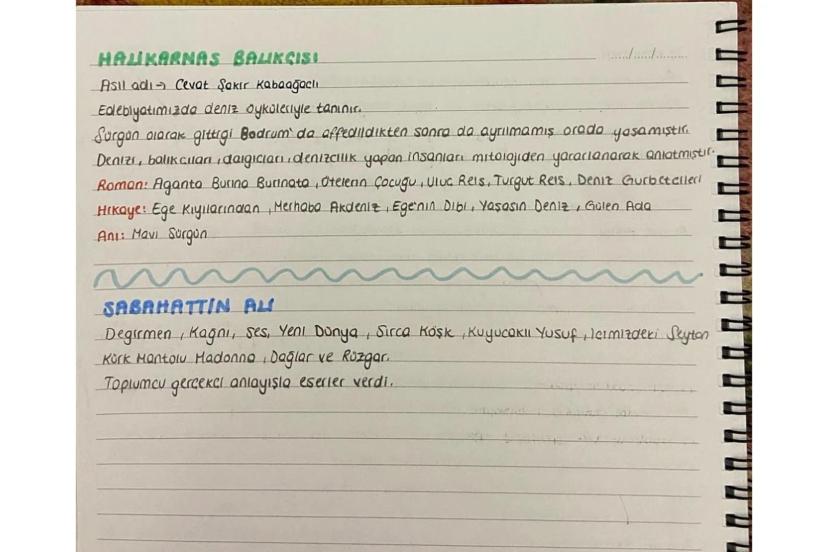 HALİKARNAS BALIKÇISI
..../..../........
Asıl adı → Cevat Şakir Kabaağaçlı
Edebiyatımızda deniz öyküleriyle tanınır.
Sürgün olarak gittiği Bodrum'da affedildikten sonra da ayrılmamış orada yaşamıştır.
Denizi, balıkçıları, dalgıçları, denizcilik yapan insanları mitolojiden yararlanarak anlatmıştır.
Roman: Aganta Burina Burinata, Ötelerin Çocuğu, Uluç Reis, Turgut Reis, Deniz Gurbetçileri
Hikaye: Ege Kıyılarından, Merhaba Akdeniz, Ege'nin Dibi, Yaşasın Deniz, Gülen Ada
Anı: Mavi Sürgün
SABAHATTİN ALİ
Değirmen, Kağnı, Ses, Yeni Dünya, Sırça Köşk, Kuyucaklı Yusuf, İçimizdeki Şeytan
Kürk Mantolu Madonna, Dağlar ve Rüzgar.
Toplumcu gerçekçi anlayışla eserler verdi.